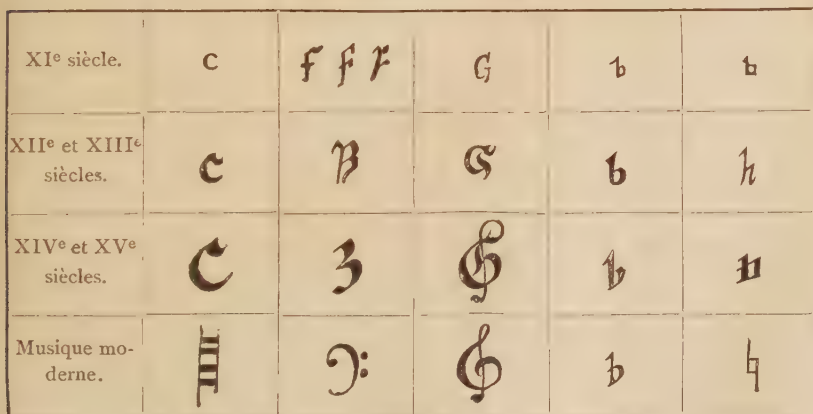 XIe siècle. C f f f G b b
XIIe et XIIIe
siècles. C B G b h
XIVe et XVe
siècles. C 3 𝄞 b ♮
Musique mo-
derne. 𝄡 𝄢 𝄞 ♭ ♮